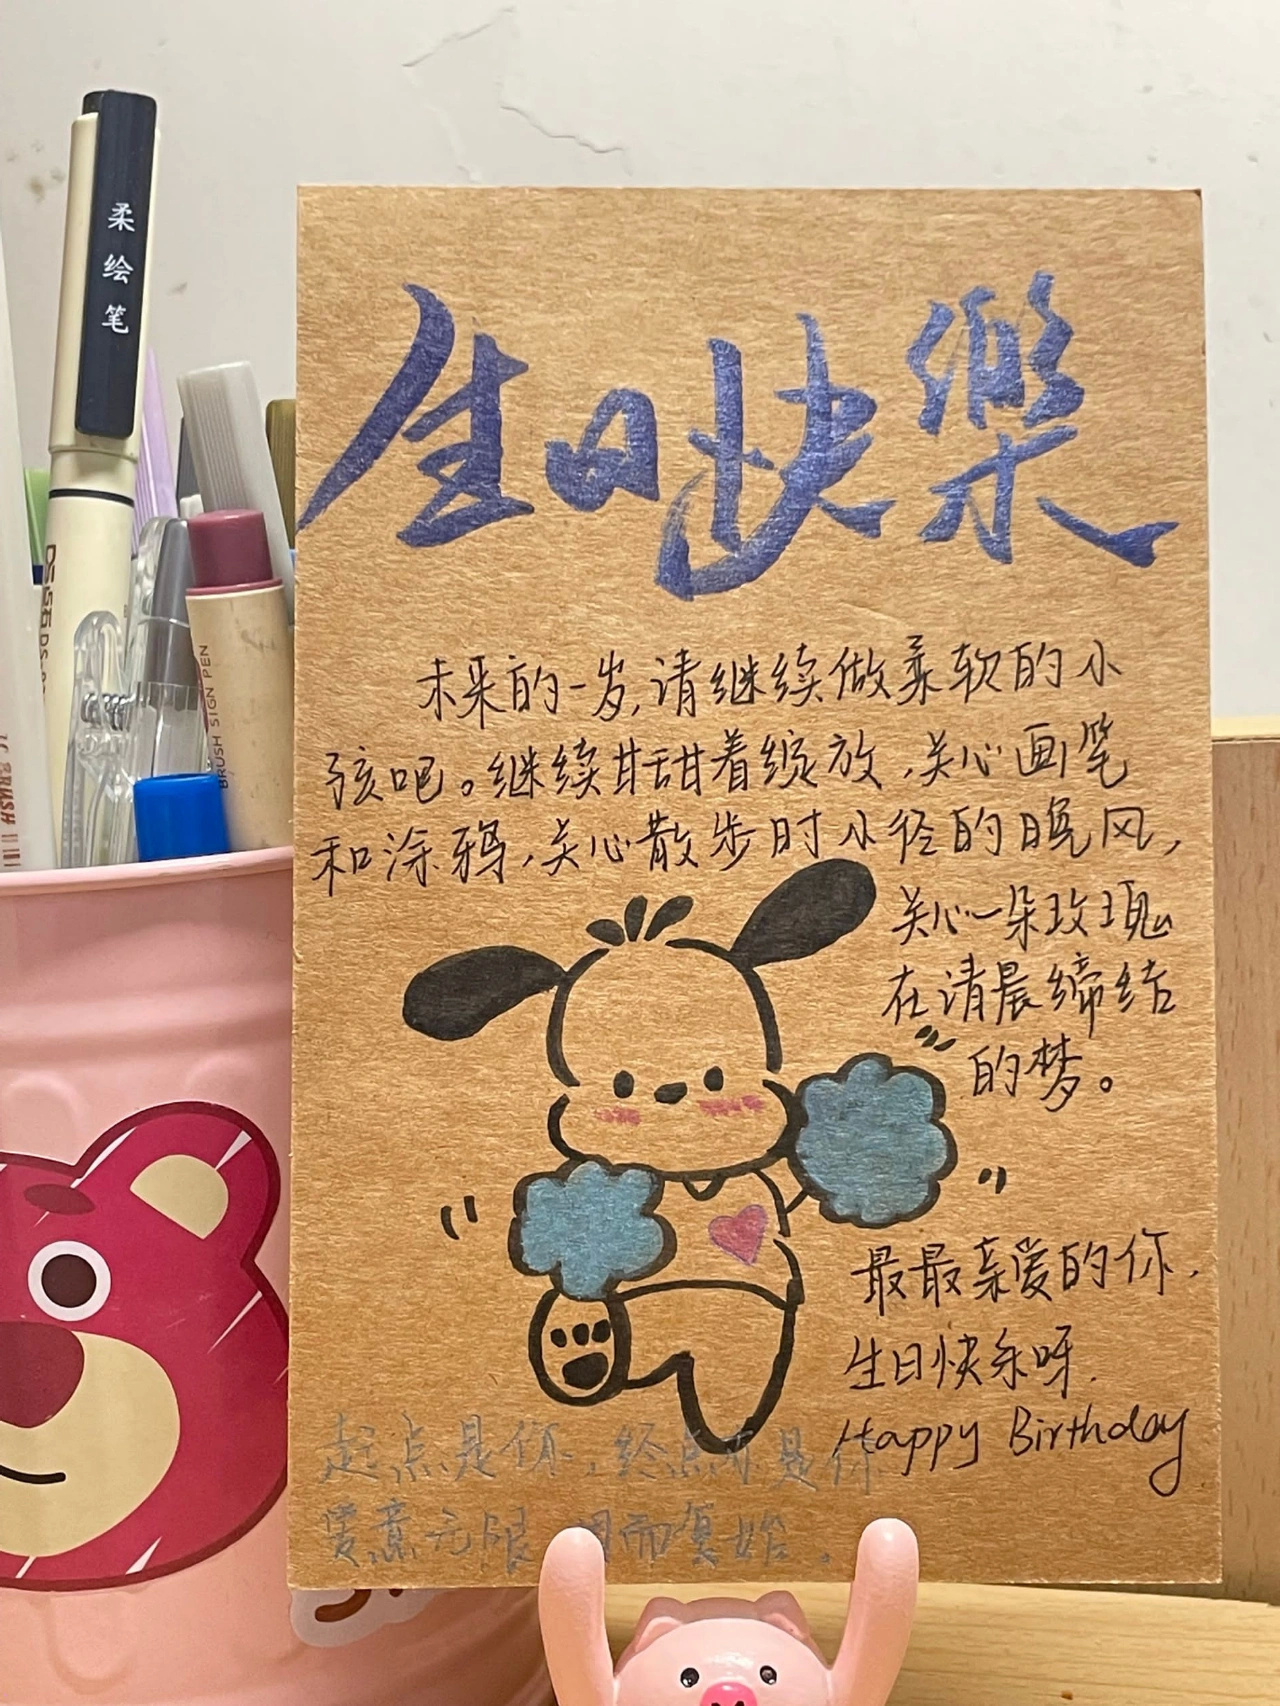 柔绘笔
BRUSH SIGN PEN
BRUSH
生日快樂
未来的一岁,请继续做柔软的小
孩吧。继续甘甜着绽放,关心画笔
和涂鸦,关心散步时小径的晚风,
关心一朵玫瑰
在清晨缔结
的梦。
最最亲爱的你,
生日快乐呀.
Happy Birthday
起点是你,终点亦是你
爱意无限 周而复始。